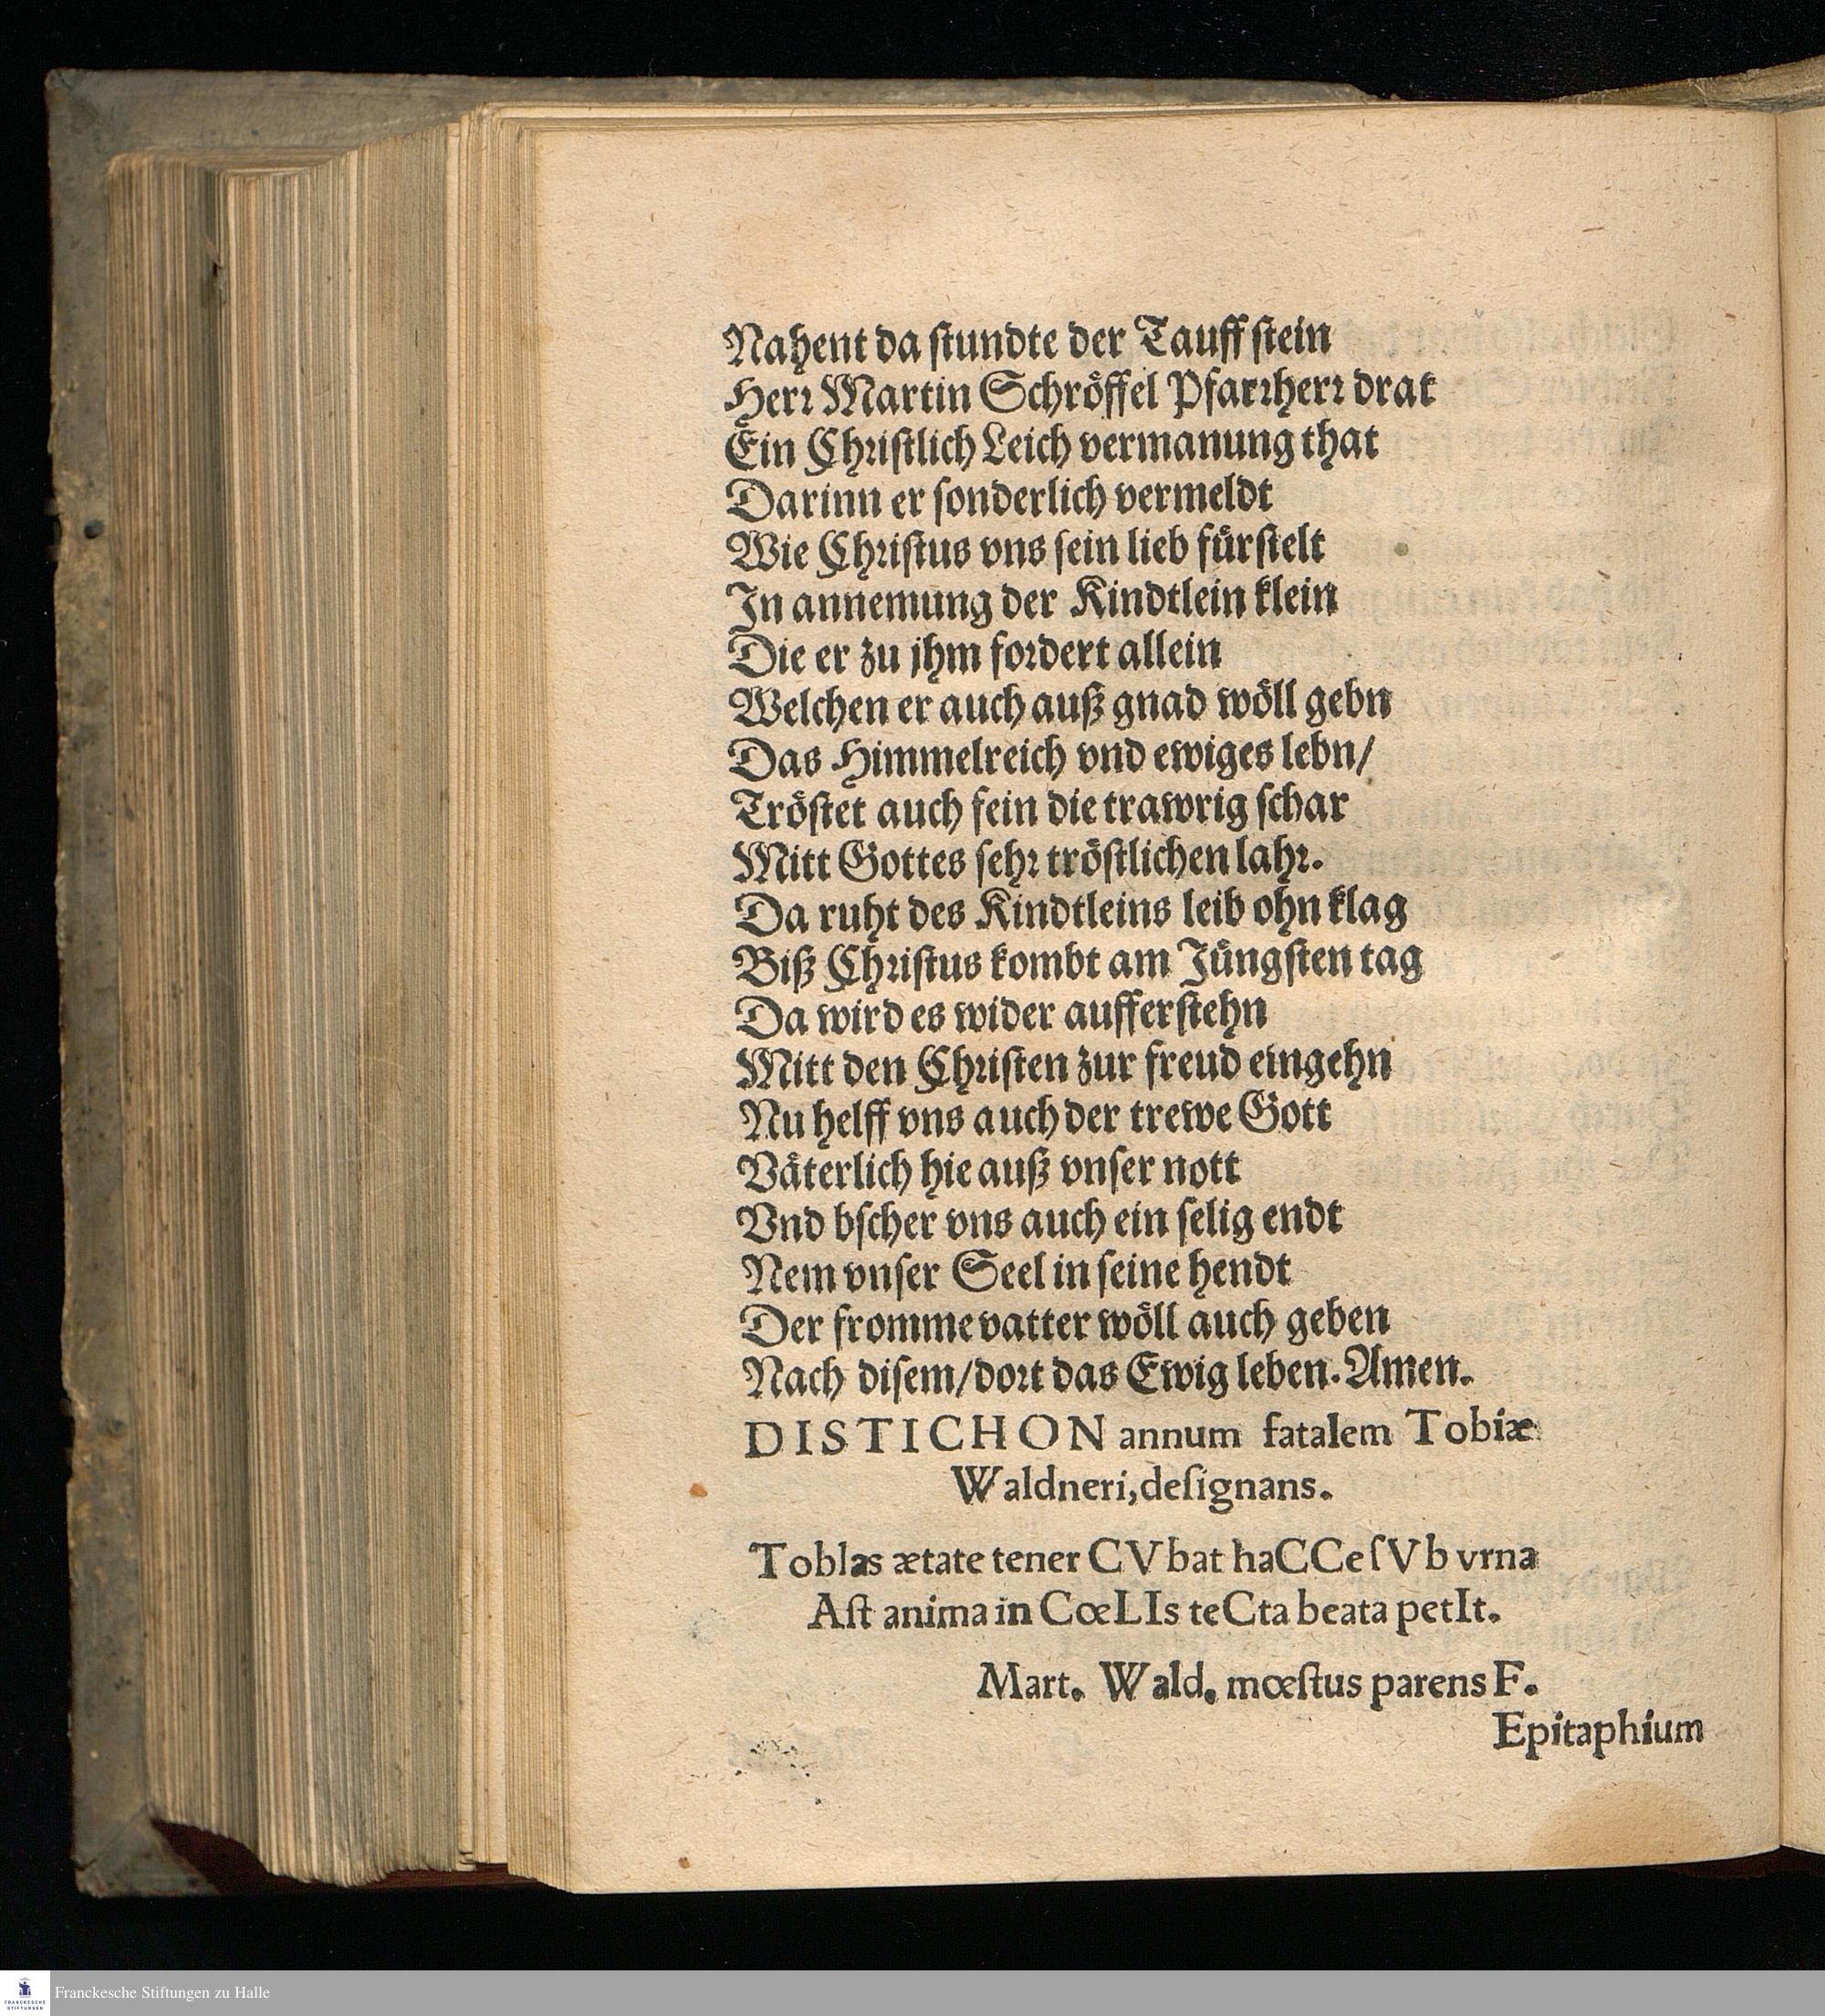 Nahent da ſtundte der Tauff ſtein
Herr Martin Schröffel Pfarrherr drat
Ein Chriſtlich Leich vermanung that
Darinn er ſonderlich vermeldt
Wie Chriſtus vns ſein lieb fürſtelt
In annemung der Kindtlein klein
Die er zu jhm fordert allein
Welchen er auch auß gnad wöll gebn
Das Himmelreich vnd ewiges lebn/
Tröſtet auch fein die trawrig ſchar
Mitt Gottes ſehr tröſtlichen lahr.
Da ruht des Kindtleins leib ohn klag
Biß Chriſtus kombt am Jüngſten tag
Da wird es wider aufferſtehn
Mitt den Chriſten zur freud eingehn
Nu helff vns auch der trewe Gott
Väterlich hie auß vnſer nott
Vnd bſcher vns auch ein ſelig endt
Nem vnſer Seel in ſeine hendt
Der fromme vatter wöll auch geben
Nach diſem/dort das Ewig leben. Amen.
DISTICHON annum fatalem Tobiæ
Waldneri, deſignans.
TobIas ætate tener CVbat haCCe ſVb vrna
Aſt anima in CœLIs teCta beata petIt.
Mart. Wald. mœſtus parens F.
Epitaphium
Franckesche Stiftungen zu Halle
FRANCKESCHE
STIFTUNGEN